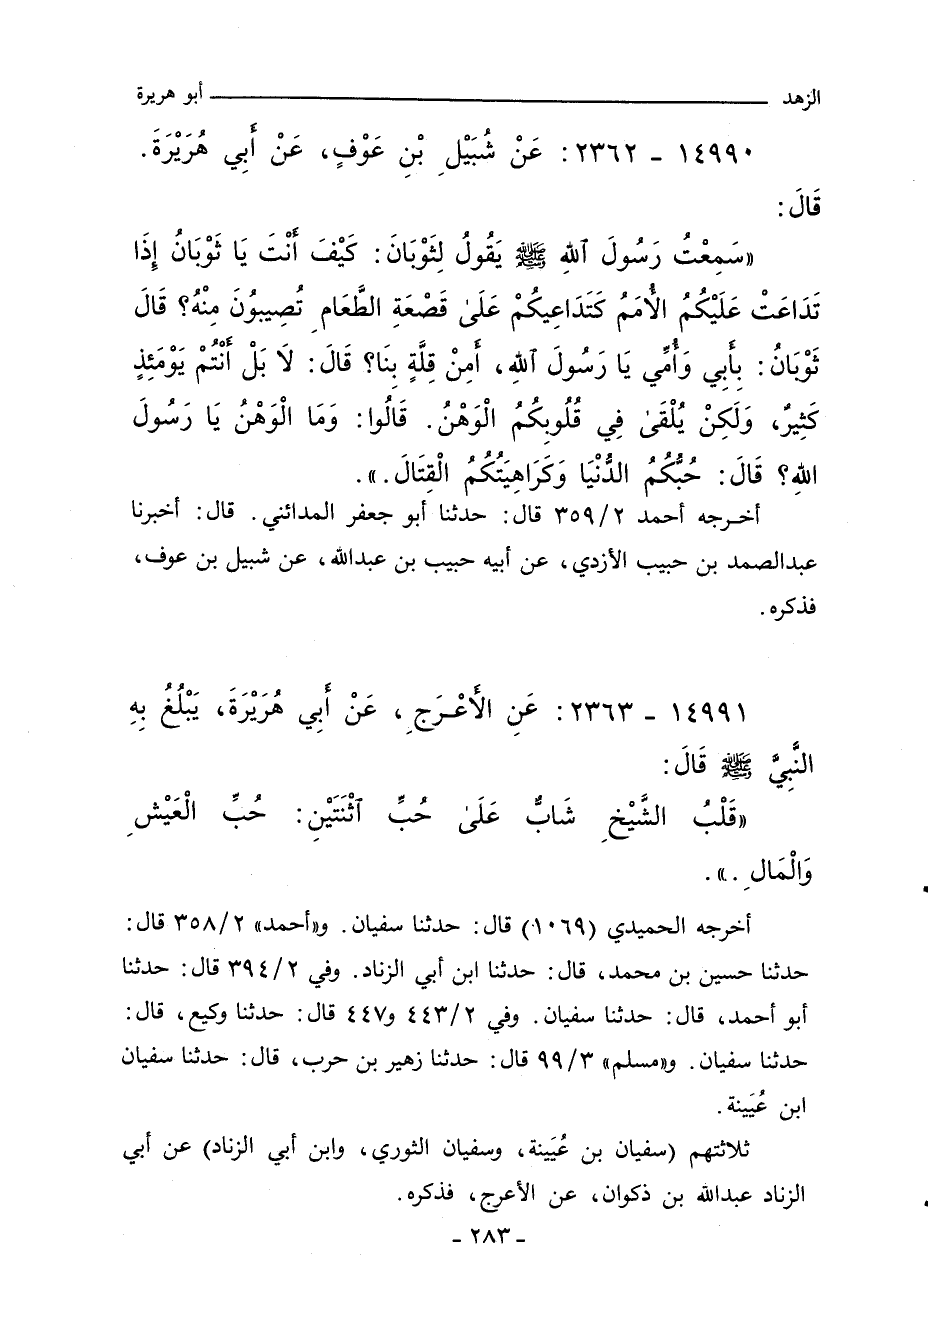 الزهد ــــــــــــــــــــــــــــ أبو هريرة
١٤٩٩٠ - ٢٣٦٢: عَنْ شُبَيْلِ بْنِ عَوْفٍ، عَنْ أَبِي هُرَيْرَةَ.
قَالَ:
«سَمِعْتُ رَسُولَ ٱللهِ ﷺ يَقُولُ لِثَوْبَانَ: كَيْفَ أَنْتَ يَا ثَوْبَانُ إِذَا
تَدَاعَتْ عَلَيْكُمُ الْأُمَمُ كَتَدَاعِيكُمْ عَلَىٰ قَصْعَةِ الطَّعَامِ تُصِيبُونَ مِنْهُ؟ قَالَ
ثَوْبَانُ: بِأَبِي وَأُمِّي يَا رَسُولَ ٱللهِ، أَمِنْ قِلَّةٍ بِنَا؟ قَالَ: لَا بَلْ أَنْتُمْ يَوْمَئِذٍ
كَثِيرٌ، وَلَكِنْ يُلْقَىٰ فِي قُلُوبِكُمُ الْوَهْنُ. قَالُوا: وَمَا الْوَهْنُ يَا رَسُولَ
اللهِ؟ قَالَ: حُبُّكُمُ الدُّنْيَا وَكَرَاهِيَتُكُمُ الْقِتَالَ.».
أخرجه أحمد ٣٥٩/٢ قال: حدثنا أبو جعفر المدائني. قال: أخبرنا
عبدالصمد بن حبيب الأزدي، عن أبيه حبيب بن عبدالله، عن شبيل بن عوف،
فذكره.
١٤٩٩١ - ٢٣٦٣: عَنِ الْأَعْرَجِ، عَنْ أَبِي هُرَيْرَةَ، يَبْلُغُ بِهِ
النَّبِيَّ ﷺ قَالَ:
«قَلْبُ الشَّيْخِ شَابٌّ عَلَىٰ حُبِّ ٱثْنَتَيْنِ: حُبِّ الْعَيْشِ
وَالْمَالِ.».
أخرجه الحميدي (١٠٦٩) قال: حدثنا سفيان. و«أحمد» ٣٥٨/٢ قال:
حدثنا حسين بن محمد، قال: حدثنا ابن أبي الزناد. وفي ٣٩٤/٢ قال: حدثنا
أبو أحمد، قال: حدثنا سفيان. وفي ٤٤٣/٢ و٤٤٧ قال: حدثنا وكيع، قال:
حدثنا سفيان. و«مسلم» ٩٩/٣ قال: حدثنا زهير بن حرب، قال: حدثنا سفيان
ابن عُيَينة.
ثلاثتهم (سفيان بن عُيَينة، وسفيان الثوري، وابن أبي الزناد) عن أبي
الزناد عبدالله بن ذكوان، عن الأعرج، فذكره.
- ٢٨٣ -